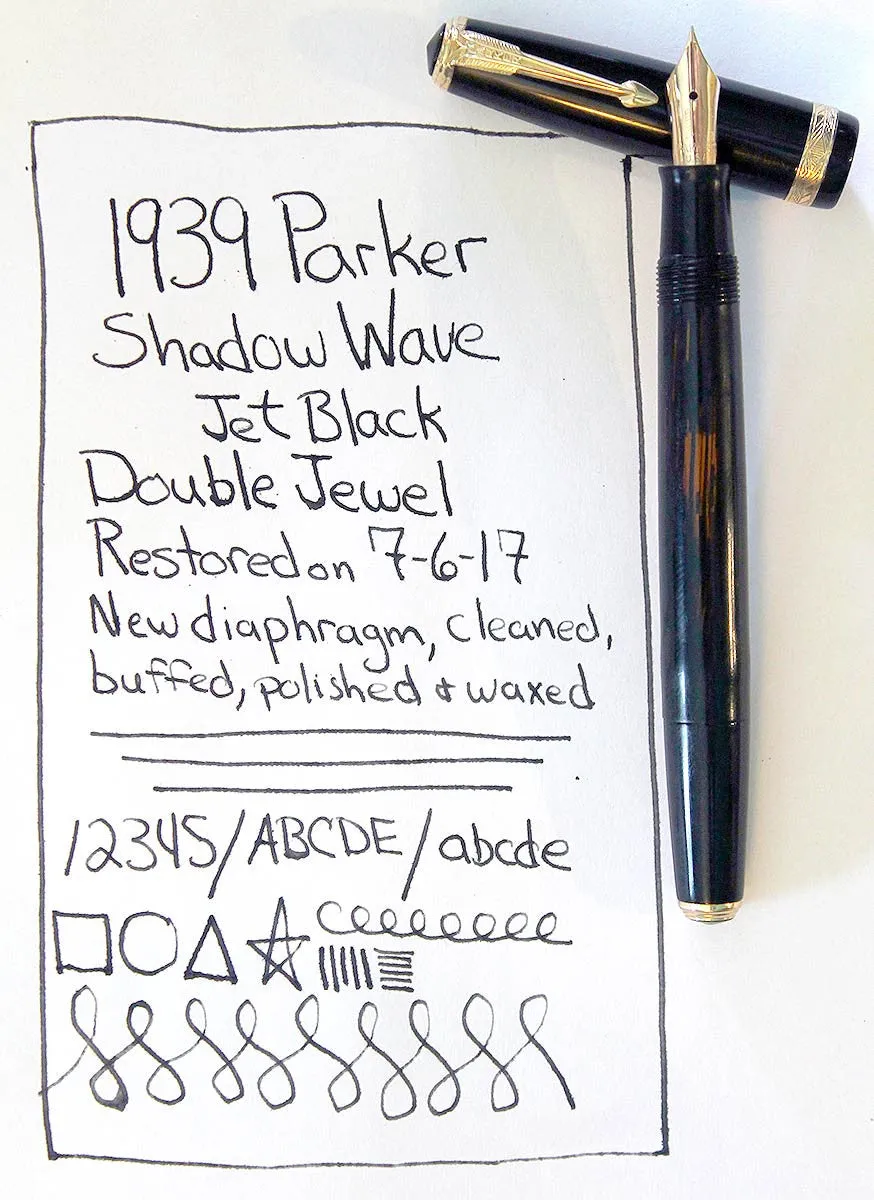 1939 Parker
Shadow Wave
Jet Black
Double Jewel
Restored on 7-6-17
New diaphragm, cleaned,
buffed, polished & waxed
12345/ABCDE/abcde